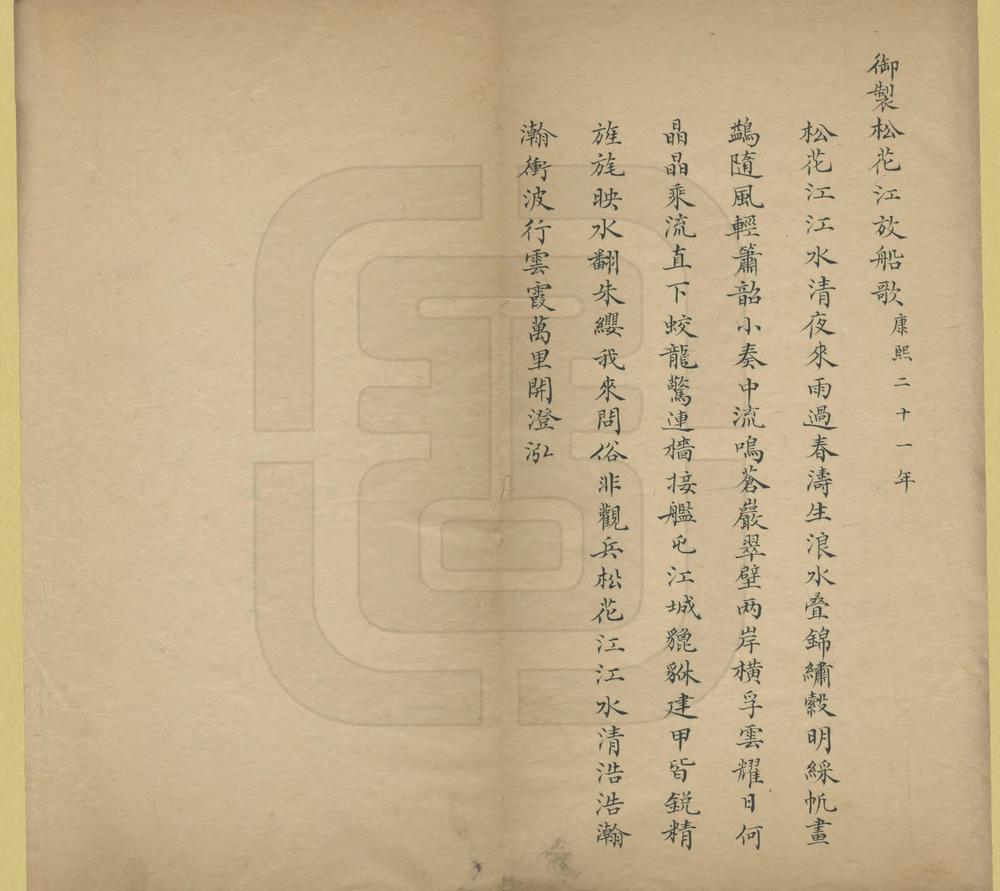 御製松花江放船歌康熙二十一年
松花江江水清夜來雨過春濤生浪水叠錦繡縠明綵帆畫
鷁隨風輕簫韶小奏中流鳴蒼巖翠壁两岸橫孚雲耀日何
晶晶乘流直下蛟龍驚連檣接艦屯江城貔貅建甲皆銳精
旌旄映水翻朱纓我來問俗非觀兵松花江江水清浩浩瀚
瀚衝波行雲霞萬里開澄泓